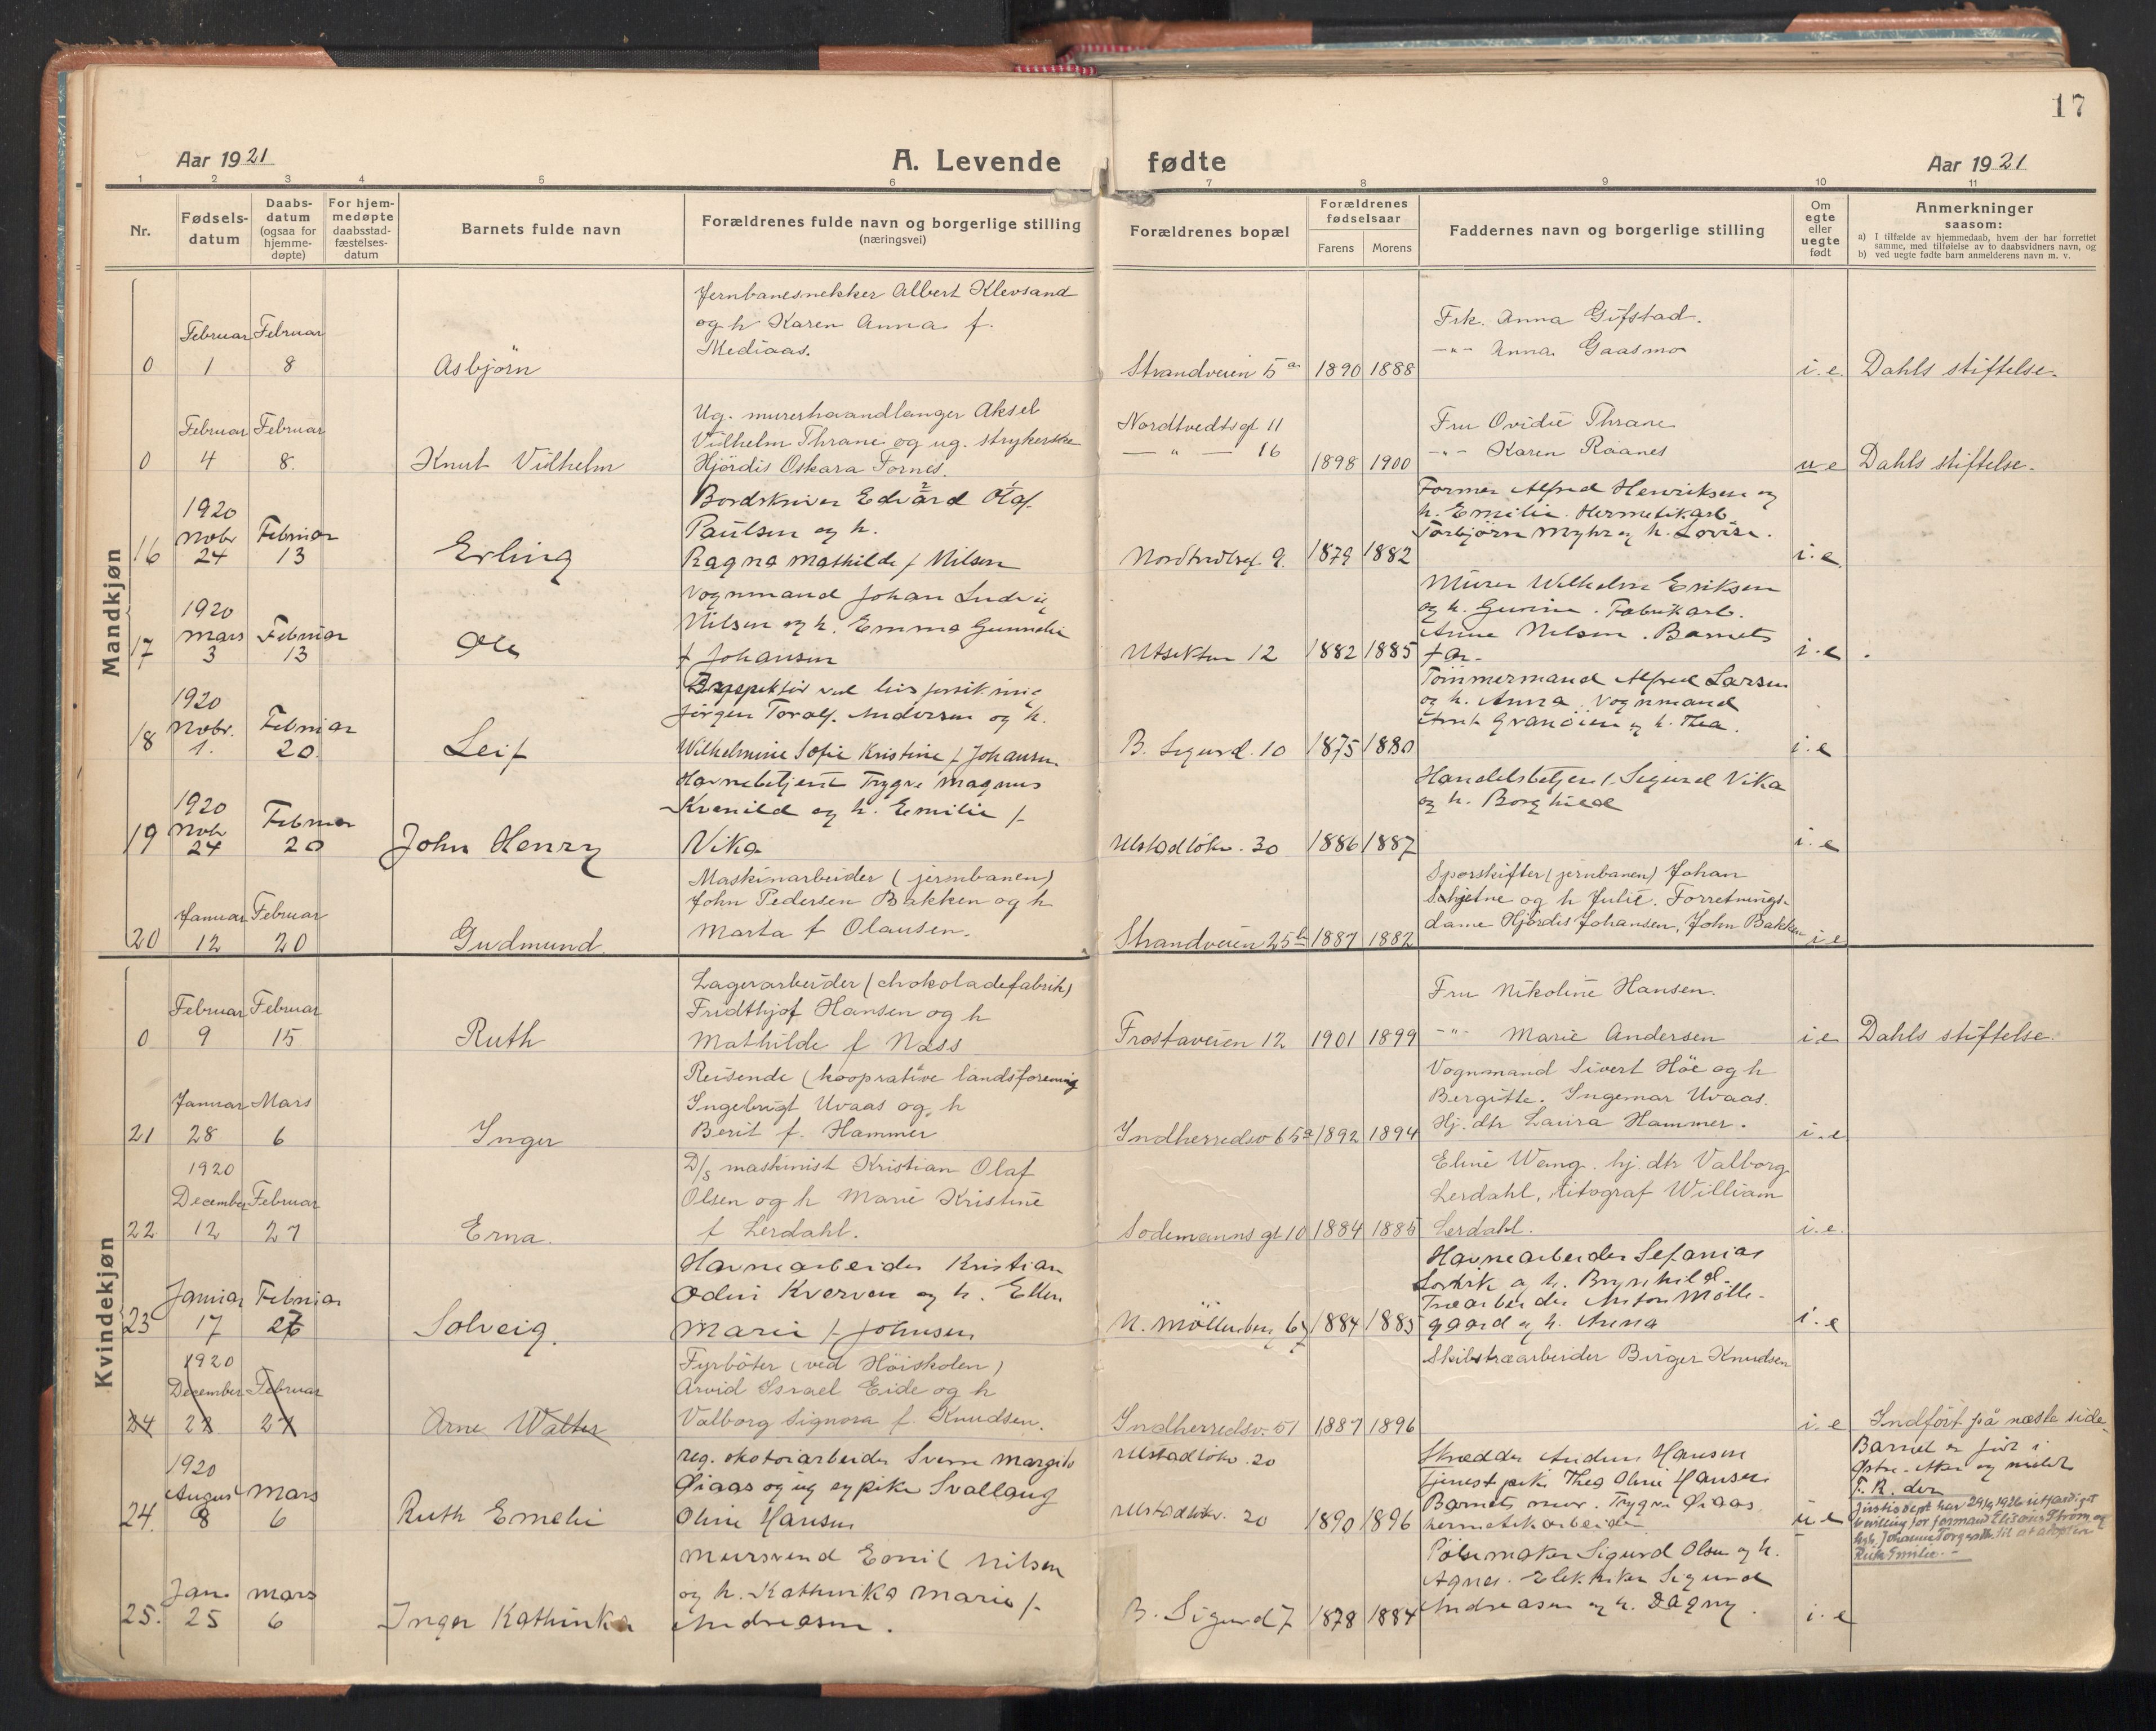 17
Aar 1921
A. Levende fødte
Aar 1921
1 2 3 4 5 6 7 8 9 10 11
Nr.
Fødsels-
datum
Daabs-
datum
(ogsaa for
hjemme-
døpte)
For hjem-
medøpte
daabsstad-
fæstelses-
datum
Barnets fulde navn
Forældrenes fulde navn og borgerlige stilling
(næringsvei)
Forældrenes bopæl
Forældrenes
fødselsaar
Farens Morens
Faddernes navn og borgerlige stilling
Om
egte
eller
uegte
født
Anmerkninger
saasom:
a) I tilfælde av hjemmedaab, hvem der har forrettet
samme, med tilføielse av to daabsvidners navn, og
b) ved uegte fødte barn anmelderens navn m. v.
Mandkjøn
0
Februar 1
Februar 8
Asbjörn
Jernbanesnekker Albert Klevsand
og h Karen Anna f.
Mediaas.
Strandveien 5a
1890 1888
Frk. Anna Gifstad.
-"- Anna Gaasmo
i.e.
Dahls stiftelse.
0
Februar 4
Februar 8.
Knut Vilhelm
Ug. murerhaandlanger Aksel
Vilhelm Thrane og ug. strykerske
Hjördis Oskara Fornes.
Nordtvedtsgt 11
— " — 16
1898 1900
Fru Ovidie Thrane
-"- Karen Raanes
u e
Dahls stiftelse.
16
1920
Nobr 24
Februar 13
Erling
Bordskriver Edvard Olaf
Paulsen og h.
Ragna Mathilde f Nilsen
9.
1879 1882
Former Alfred Henriksen og
h. Emilie. Hermetikarb.
Torbjørn Myhr og h. Lovise.
i.e.
17
1920
Mars 3
Februar 13
Ole
Vognmand Johan Ludvig
Nilsen og h. Emma
f Johansen
12
1882 1885
Murer Wilhelm Eriksen
og h. Gurine. Fabrikarb.
Anne Nilsen. Barnets
far.
i.e.
18
1920
Nobr. 1.
Februar 20
Leif
Jörgen Toralf Andersen og h.
Wilhelmine Sofie Kristine f Johansen
B. Sigurd. 10
1875 1880
Tömmermand Alfred Larsen
og h. Anna. Vognmand
og h. Thea.
i.e
19
1920
Nobr 24
Februar 20
John Henry
Havnebetjent Trygve Magnus
Kvenild og h. Emilie f.
Vika
30
1886 1887
Handelsbetjent Sigurd Vika
og h. Borghild
i.e
20
Januar 12
Februar 20
Gudmund.
Maskinarbeider (jernbanen)
John Pedersen Bakken og h
Marta f Olausen.
Strandveien 25b
1887 1882
Sporskifter (jernbanen) Johan
Schjetne og h Julie. Forretnings-
dame Hjördis Johansen, John Bakken
i.e
Kvindekjøn
0
Februar 9
Februar 15
Ruth
Lagerarbeider (chokoladefabrik)
Fridthjof Hansen og h
Mathilde f Næss
Frostaveien 12
1901 1899
Fru Nikoline Hansen.
-"- Marie Andersen
i e
Dahls stiftelse.
21
Januar 28
Mars 6
Inger
Reisende (kooprative landsforening
Ingebrigt Uvaas og h
Berit f. Hammer
Indherredsv 65a
1892 1894
Vognmand Sivert Höe og h
Bergitte. Ingemar Uvaas.
Hj. dtr Laura Hammer.
i.e
22
1920
December 12
Februar 27
Erna.
D/s maskinist Kristian Olaf
Olsen og h Marie Kristine
f Lerdahl.
Sodemanns gt 10
1884 1885
Eline Wang. hj. dtr Valborg
Lerdahl, litograf William
Lerdahl.
i.e.
23
Januar 17
Februar 27
Solveig.
Havnearbeider Kristian
Odin Kverven og h. Ellen
Marie f. Johnsen
N. Möllenberg 67
1884 1885
Havnearbeider Sefanias
og h. Brynhild.
Træarbeider Anton Mölle-
gaard og h. Anna
i.e
24
1920
December 22
Februar 27
Arne Walter
Fyrböter (ved Höiskolen)
Arvid Israel Eide og h
Valborg Signora f. Knudsen.
Indherredsv. 51
1887 1896
Skibstræarbeider Birger Knudsen
i.e
Indfört på næste side.
24.
1920
August 8
Mars 6
Ruth Emelie
ug. skotöiarbeider Sverre Margido
Øiaas og ug sypike Svallaug
Oline Hansen
20
20
1890 1896
Skrædder Anders Hansen
Tjenestpike Thea Oline Hansen
Barnets mor. Trygve Øiaas
hermetikarbeider
u e
Barnet er född i
Østre Aker og meldt
F. R. der
Justisdept har 29/9 1926 utfærdiget
bevilling for formand Elisæus Strøm og
til at adoptere
Ruth Emilie. -
25.
Jan. 25
Mars 6
Inger Kathinka
Mursvend Emil Nilsen
og h. Kathinka Marie f.
Andreasen.
B. Sigurd 7
1878 1884
Pölsemaker Sigurd Olsen og h.
Agnes. Elektriker Sigurd
Andreasen og h. Dagny.
i.e